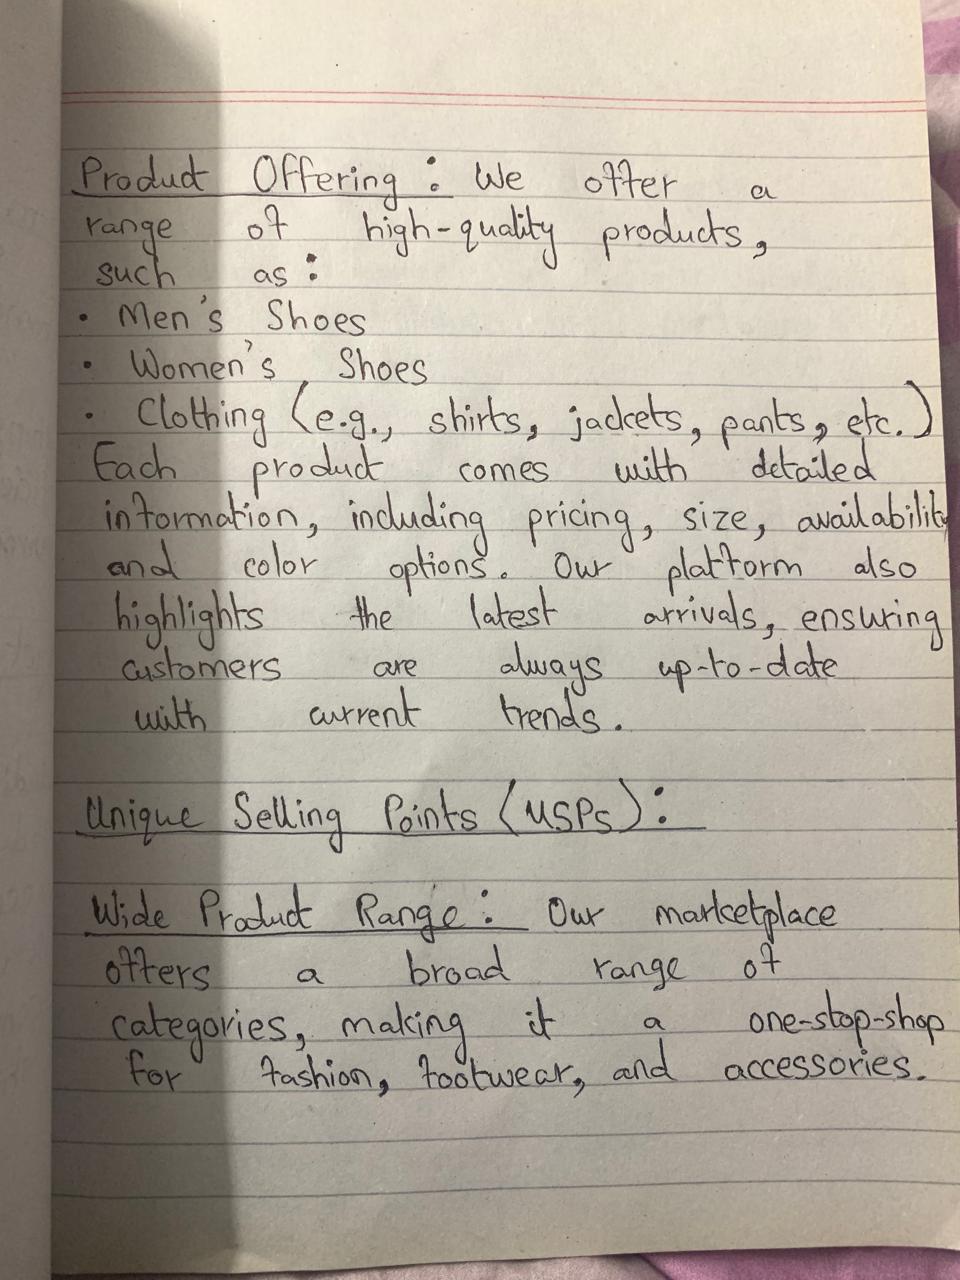 Product Offering : We offer a
range of high-quality products,
such as :
• Men's Shoes
• Women's Shoes
• Clothing (e.g., shirts, jackets, pants, etc.)
Each product comes with detailed
information, including pricing, size, availability
and color options. Our platform also
highlights the latest arrivals, ensuring
customers are always up-to-date
with current trends.
Unique Selling Points (USPs) :
Wide Product Range : Our marketplace
offers a broad range of
categories, making it a one-stop-shop
for fashion, footwear, and accessories.